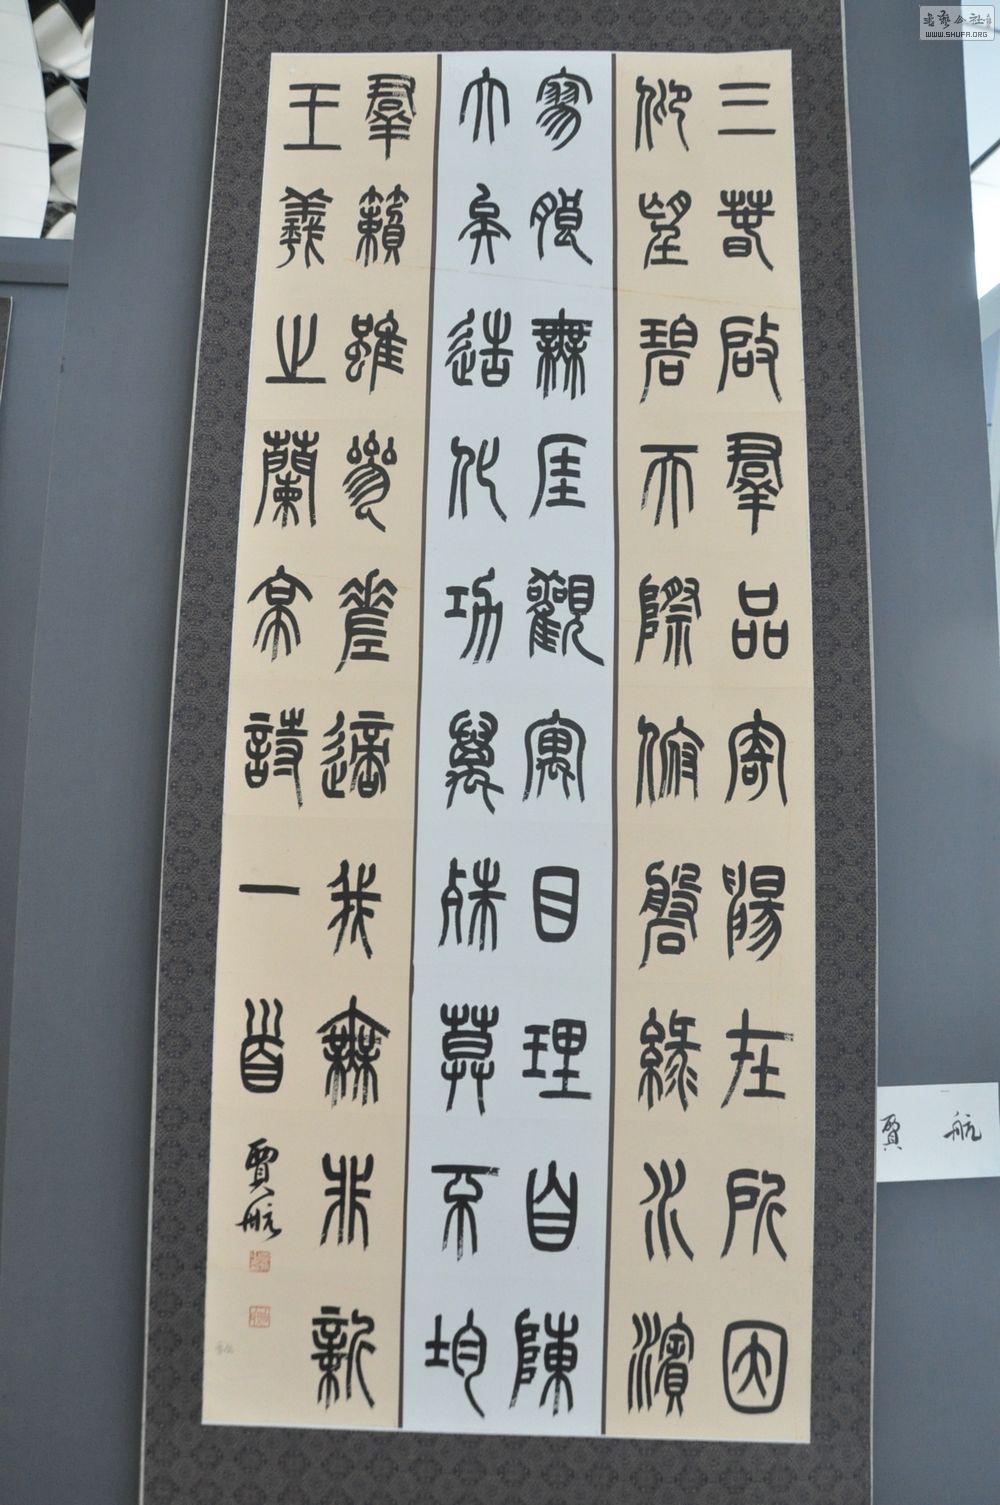 三春啟羣品寄暢在所因
仰望碧天際俯磐綠水濱
寥朗無厓觀寓目理自陳
大矣造化功萬殊莫不均
羣籟雖參差適我無非新
王羲之蘭亭詩一首 賈航
賈 航
書藝公社
WWW.SHUFA.ORG